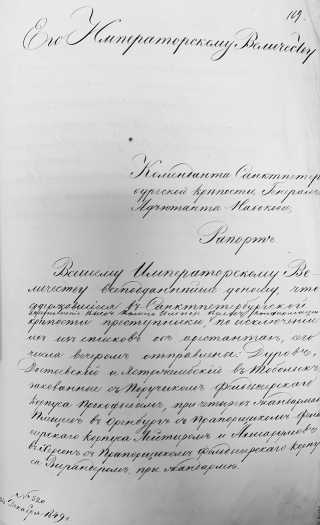 169.
Его Императорскому Величеству
Коменданта Санктпетер
бургской крепости, Генералъ
Адъютанта Набокова,
Рапортъ
Вашему Императорскому Ве
личеству всеподданнейше доношу, что
содержавшиеся въ Санктпетербургской
крепости преступники, по исключении
ихъ изъ списковъ об арестантахъ, сего
числа вечеромъ отправлены: Дуровъ,
Достоевский и Ястржембский въ Тобольскъ
закованные съ Поручикомъ фельдъегерскаго
Корпуса Прокофьевымъ, при четырехъ Жандармахъ
Плещеевъ въ Оренбургъ съ Прапорщикомъ фельдъ
егерского Корпуса Лейтиромъ и Ахшарумовъ
въ Херсонъ съ Прапорщикомъ фельдъегерского Корпу
са, при Жандарме.
№ 520
Декабря 1849 г.